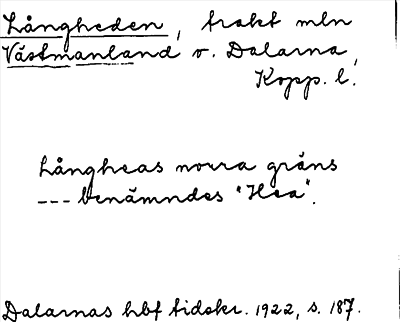 Långheden, trakt mln
Västmanland o. Dalarna,
Kopp. l.
Långheas norra gräns
--- benämndes "Hea".
Dalarnas hbf tidskr. 1922, s. 187.